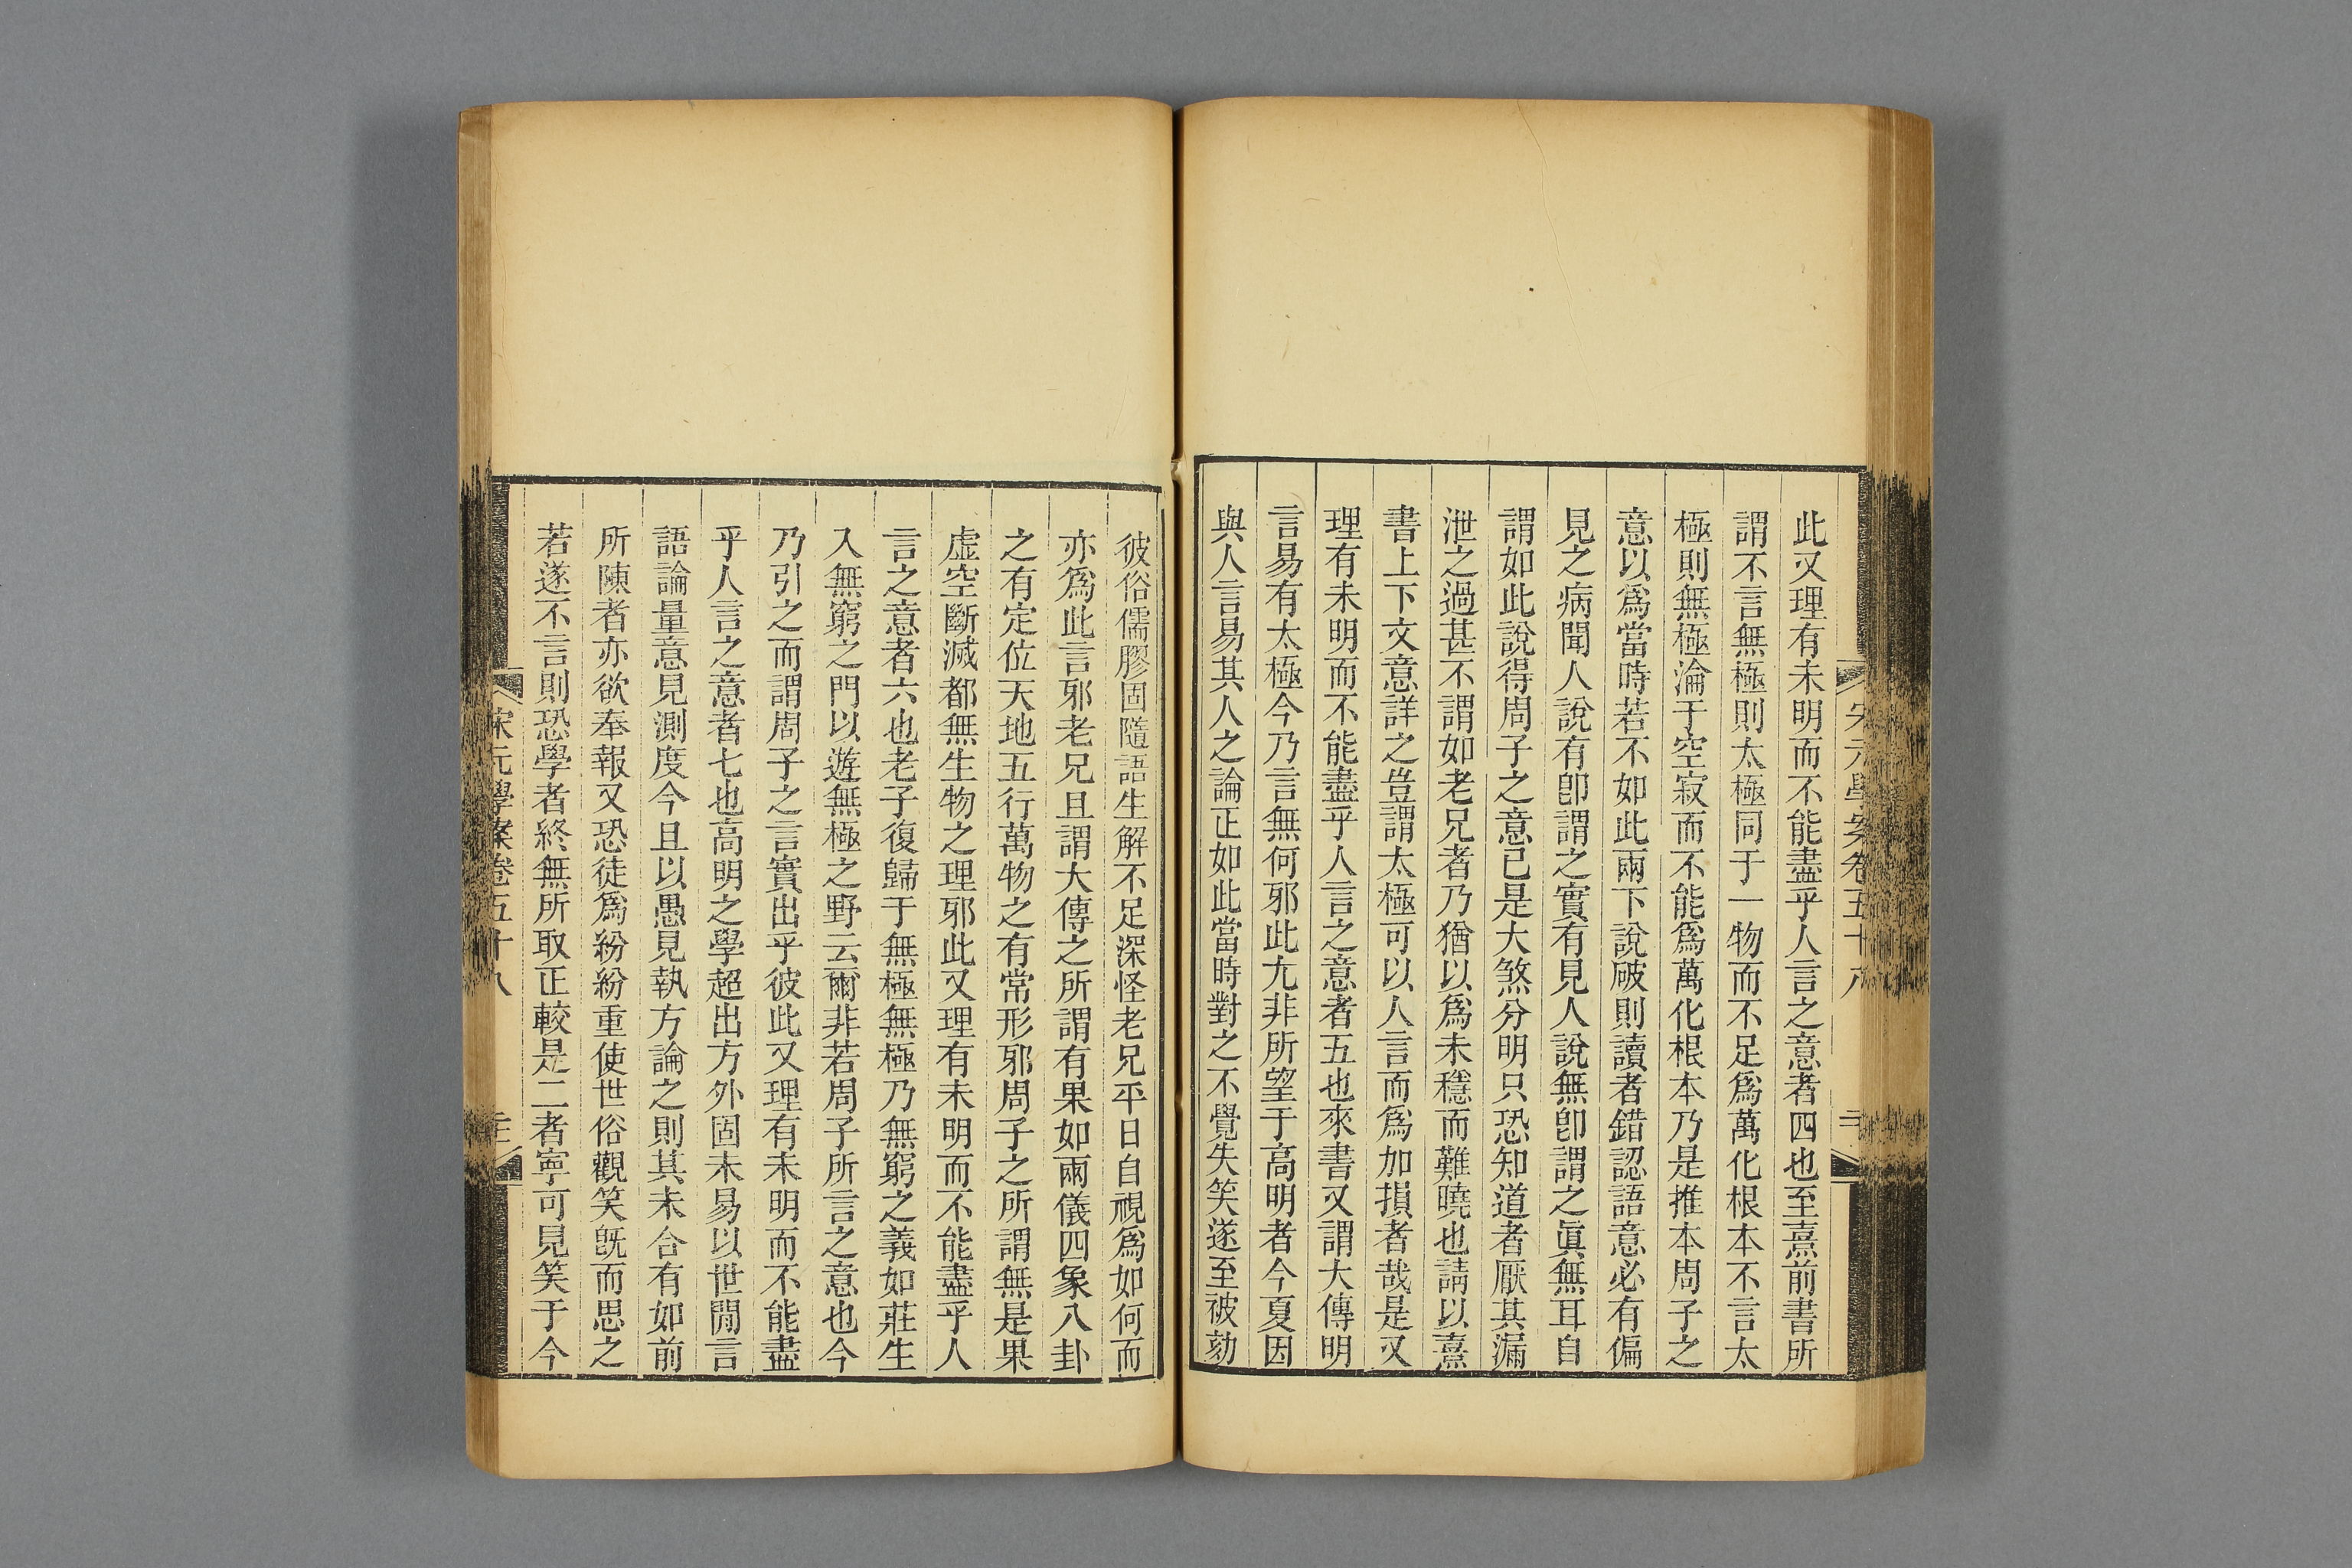 此又理有未明而不能盡乎人言之意者四也至熹前書所
謂不言無極則太極同于一物而不足爲萬化根本不言太
極則無極淪于空寂而不能爲萬化根本乃是推本周子之
意以爲當時若不如此兩下說破則讀者錯認語意必有偏
見之病聞人說有卽謂之實有見人說無卽謂之眞無耳自
謂如此說得周子之意已是大煞分明只恐知道者厭其漏
泄之過甚不謂如老兄者乃猶以爲未穩而難曉也請以熹
書上下文意詳之豈謂太極可以人言而爲加損者哉是又
理有未明而不能盡乎人言之意者五也來書又謂大傳明
言易有太極今乃言無何邪此尤非所望于高明者今夏因
與人言易其人之論正如此當時對之不覺失笑遂至被劾
彼俗儒膠固隨語生解不足深怪老兄平日自視爲如何而
亦爲此言邪老兄且謂大傳之所謂有果如兩儀四象八卦
之有定位天地五行萬物之有常形邪周子之所謂無是果
虛空斷滅都無生物之理邪此又理有未明而不能盡乎人
言之意者六也老子復歸于無極無極乃無窮之義如莊生
入無窮之門以遊無極之野云爾非若周子所言之意也今
乃引之而謂周子之言實出乎彼此又理有未明而不能盡
乎人言之意者七也高明之學超出方外固未易以世閒言
語論量意見測度今且以愚見執方論之則其未合有如前
所陳者亦欲奉報又恐徒爲紛紛重使世俗觀笑旣而思之
若遂不言則恐學者終無所取正較是二者寧可見笑于今
宋元學案卷五十八